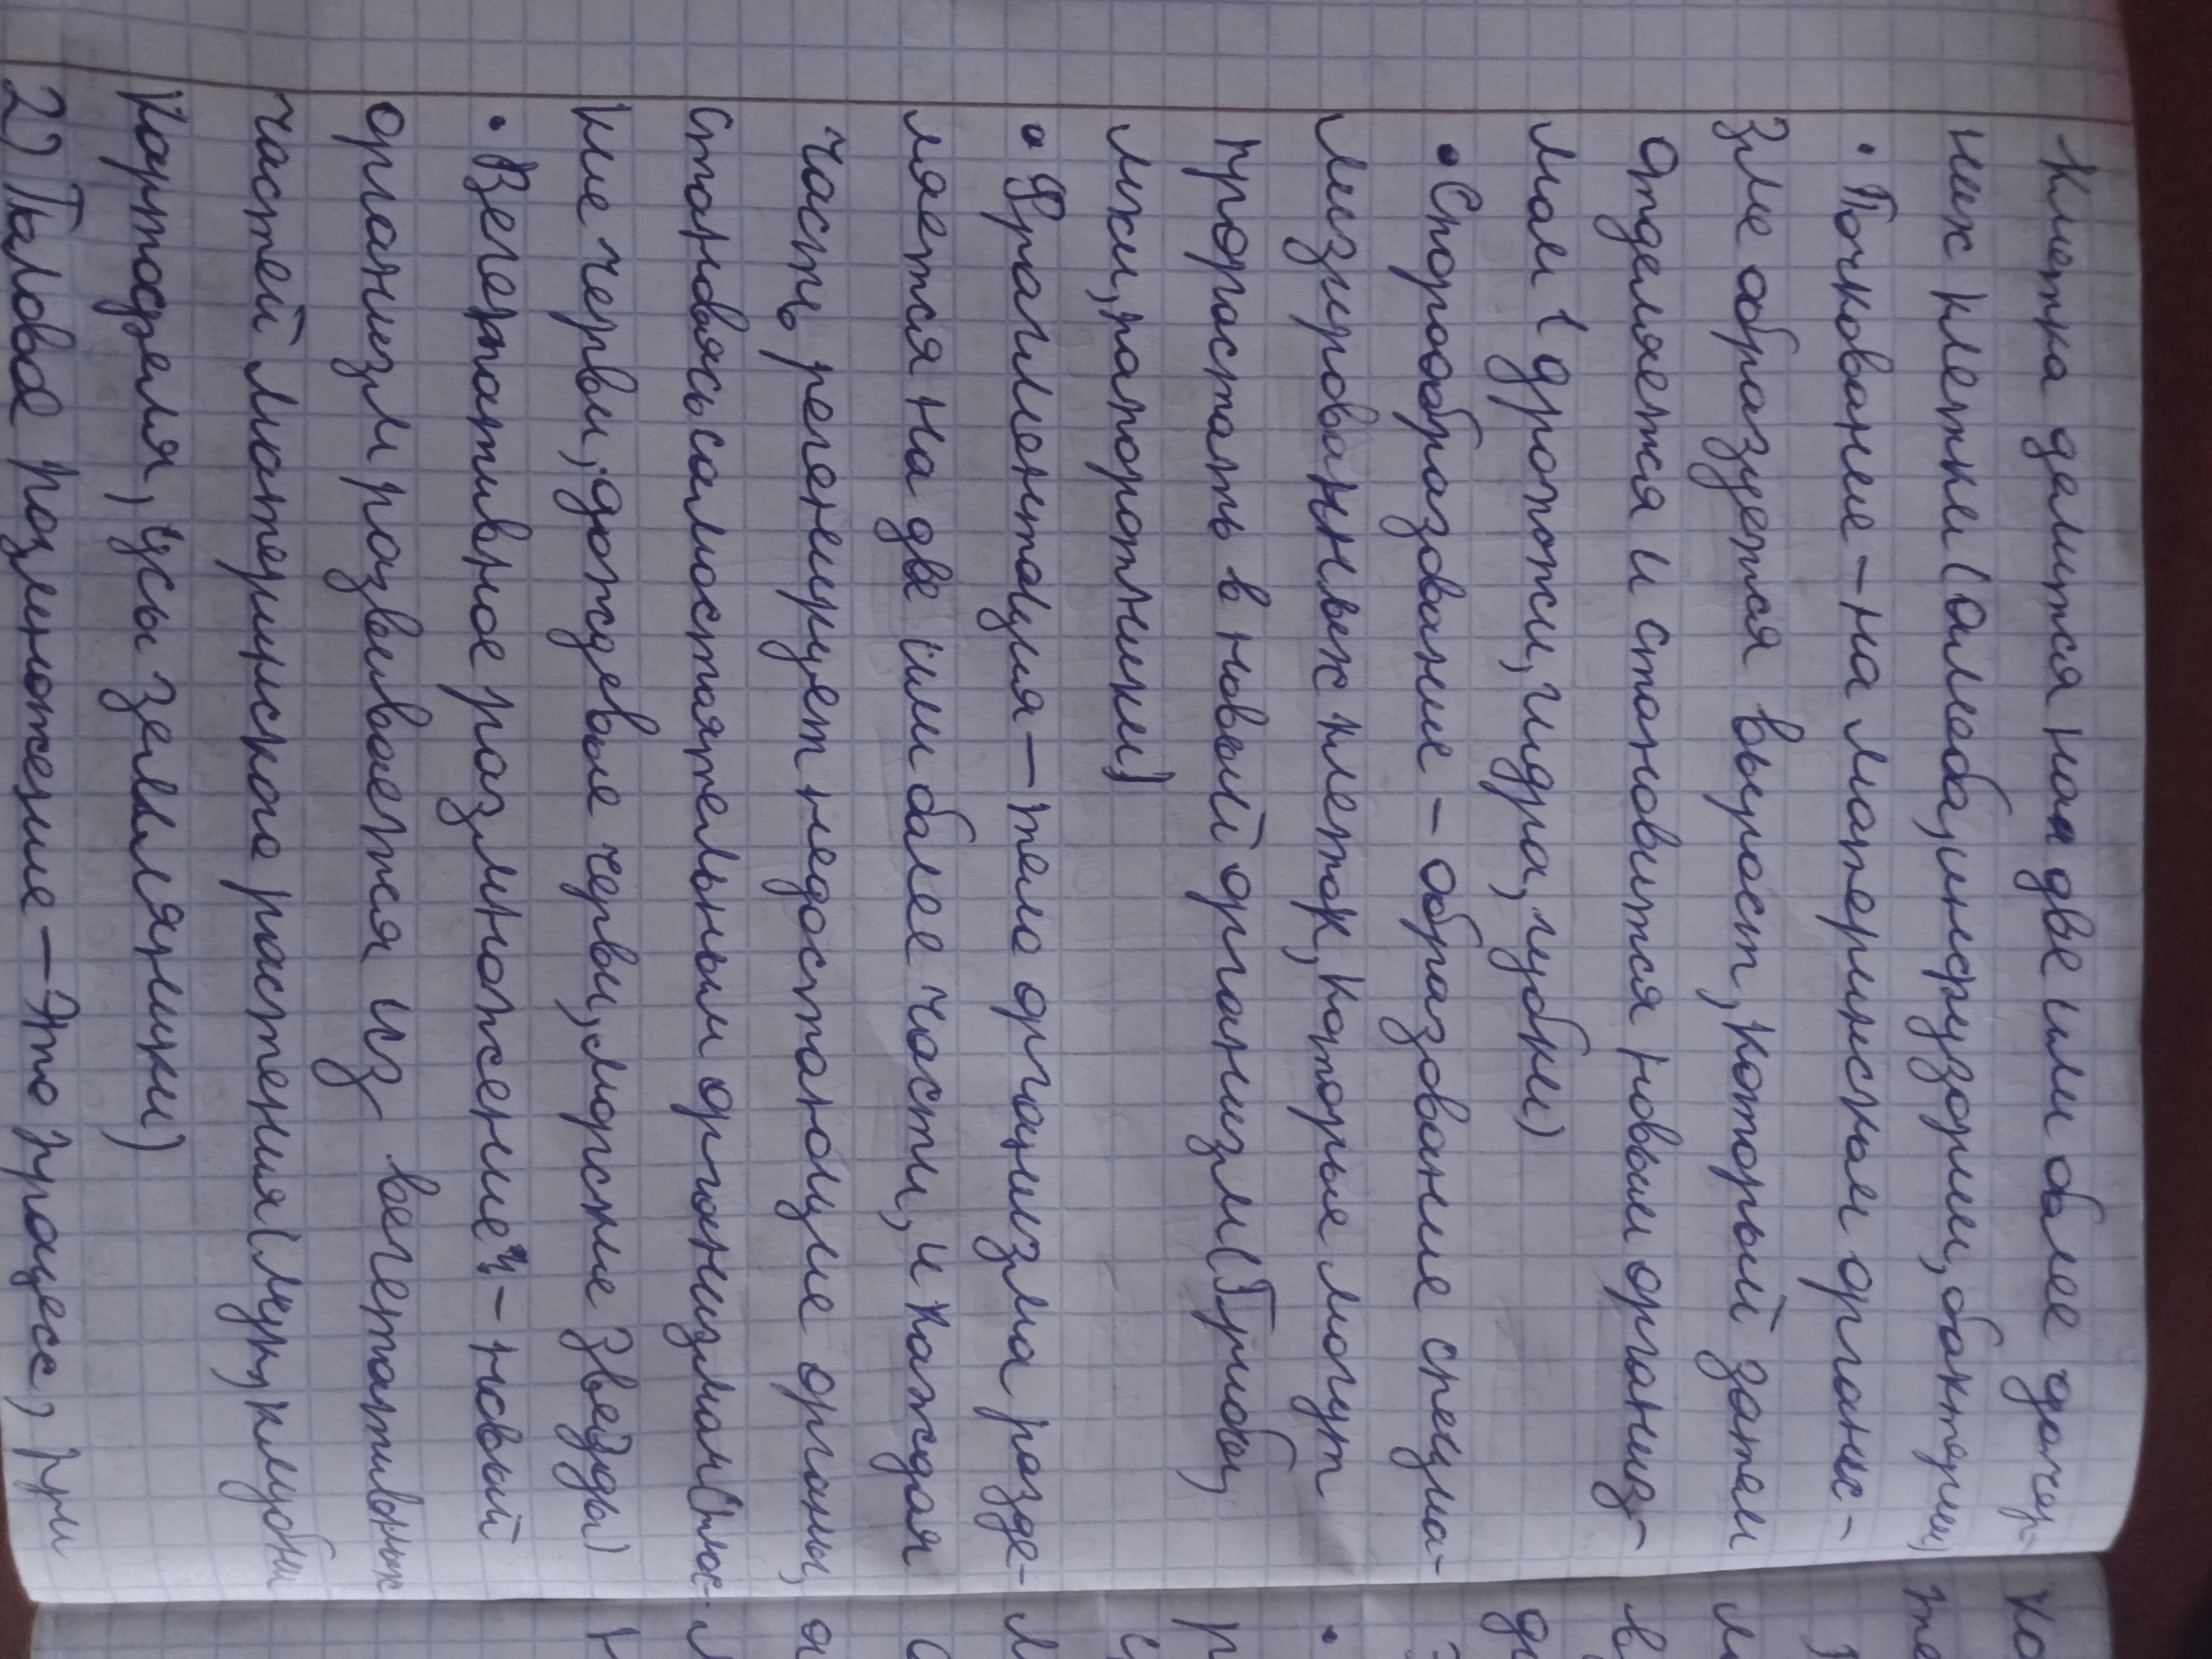 клетка делится на две или более дочер-
них клетки (амеба, инфузории, бактерии)
• Почкование – на материнском органи-
зме образуется вырост, который затем
отделяется и становится новым организ-
мом ( дрожжи, гидра, губки)
• Спорообразование – образование специа-
лизированных клеток, которые могут
прорастать в новый организм (Грибы,
мхи, папоротники)
• Фрагментация – тело организма разде-
ляется на две или более части, и каждая
часть регенирует недостающие органы,
становясь самостоятельным организмам (плос-
кие черви, дождевые черви, морские звезды)
• Вегетативное размножение – новый
организм развивается из вегетативных
частей материнского растения (лук, клубни
картофеля, усы земляники)
2) Половое размножение – Это процесс, при